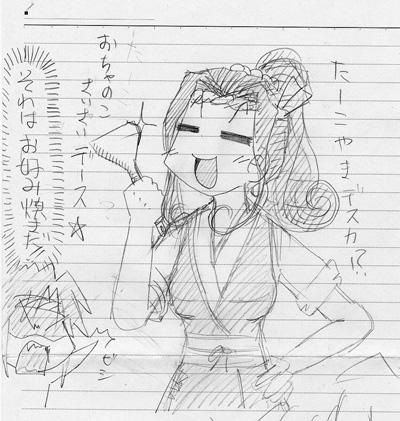 たーこやき
デスカ!?
おちゃのこ
さいさいデース☆
それはお好み焼きだ
ビシ